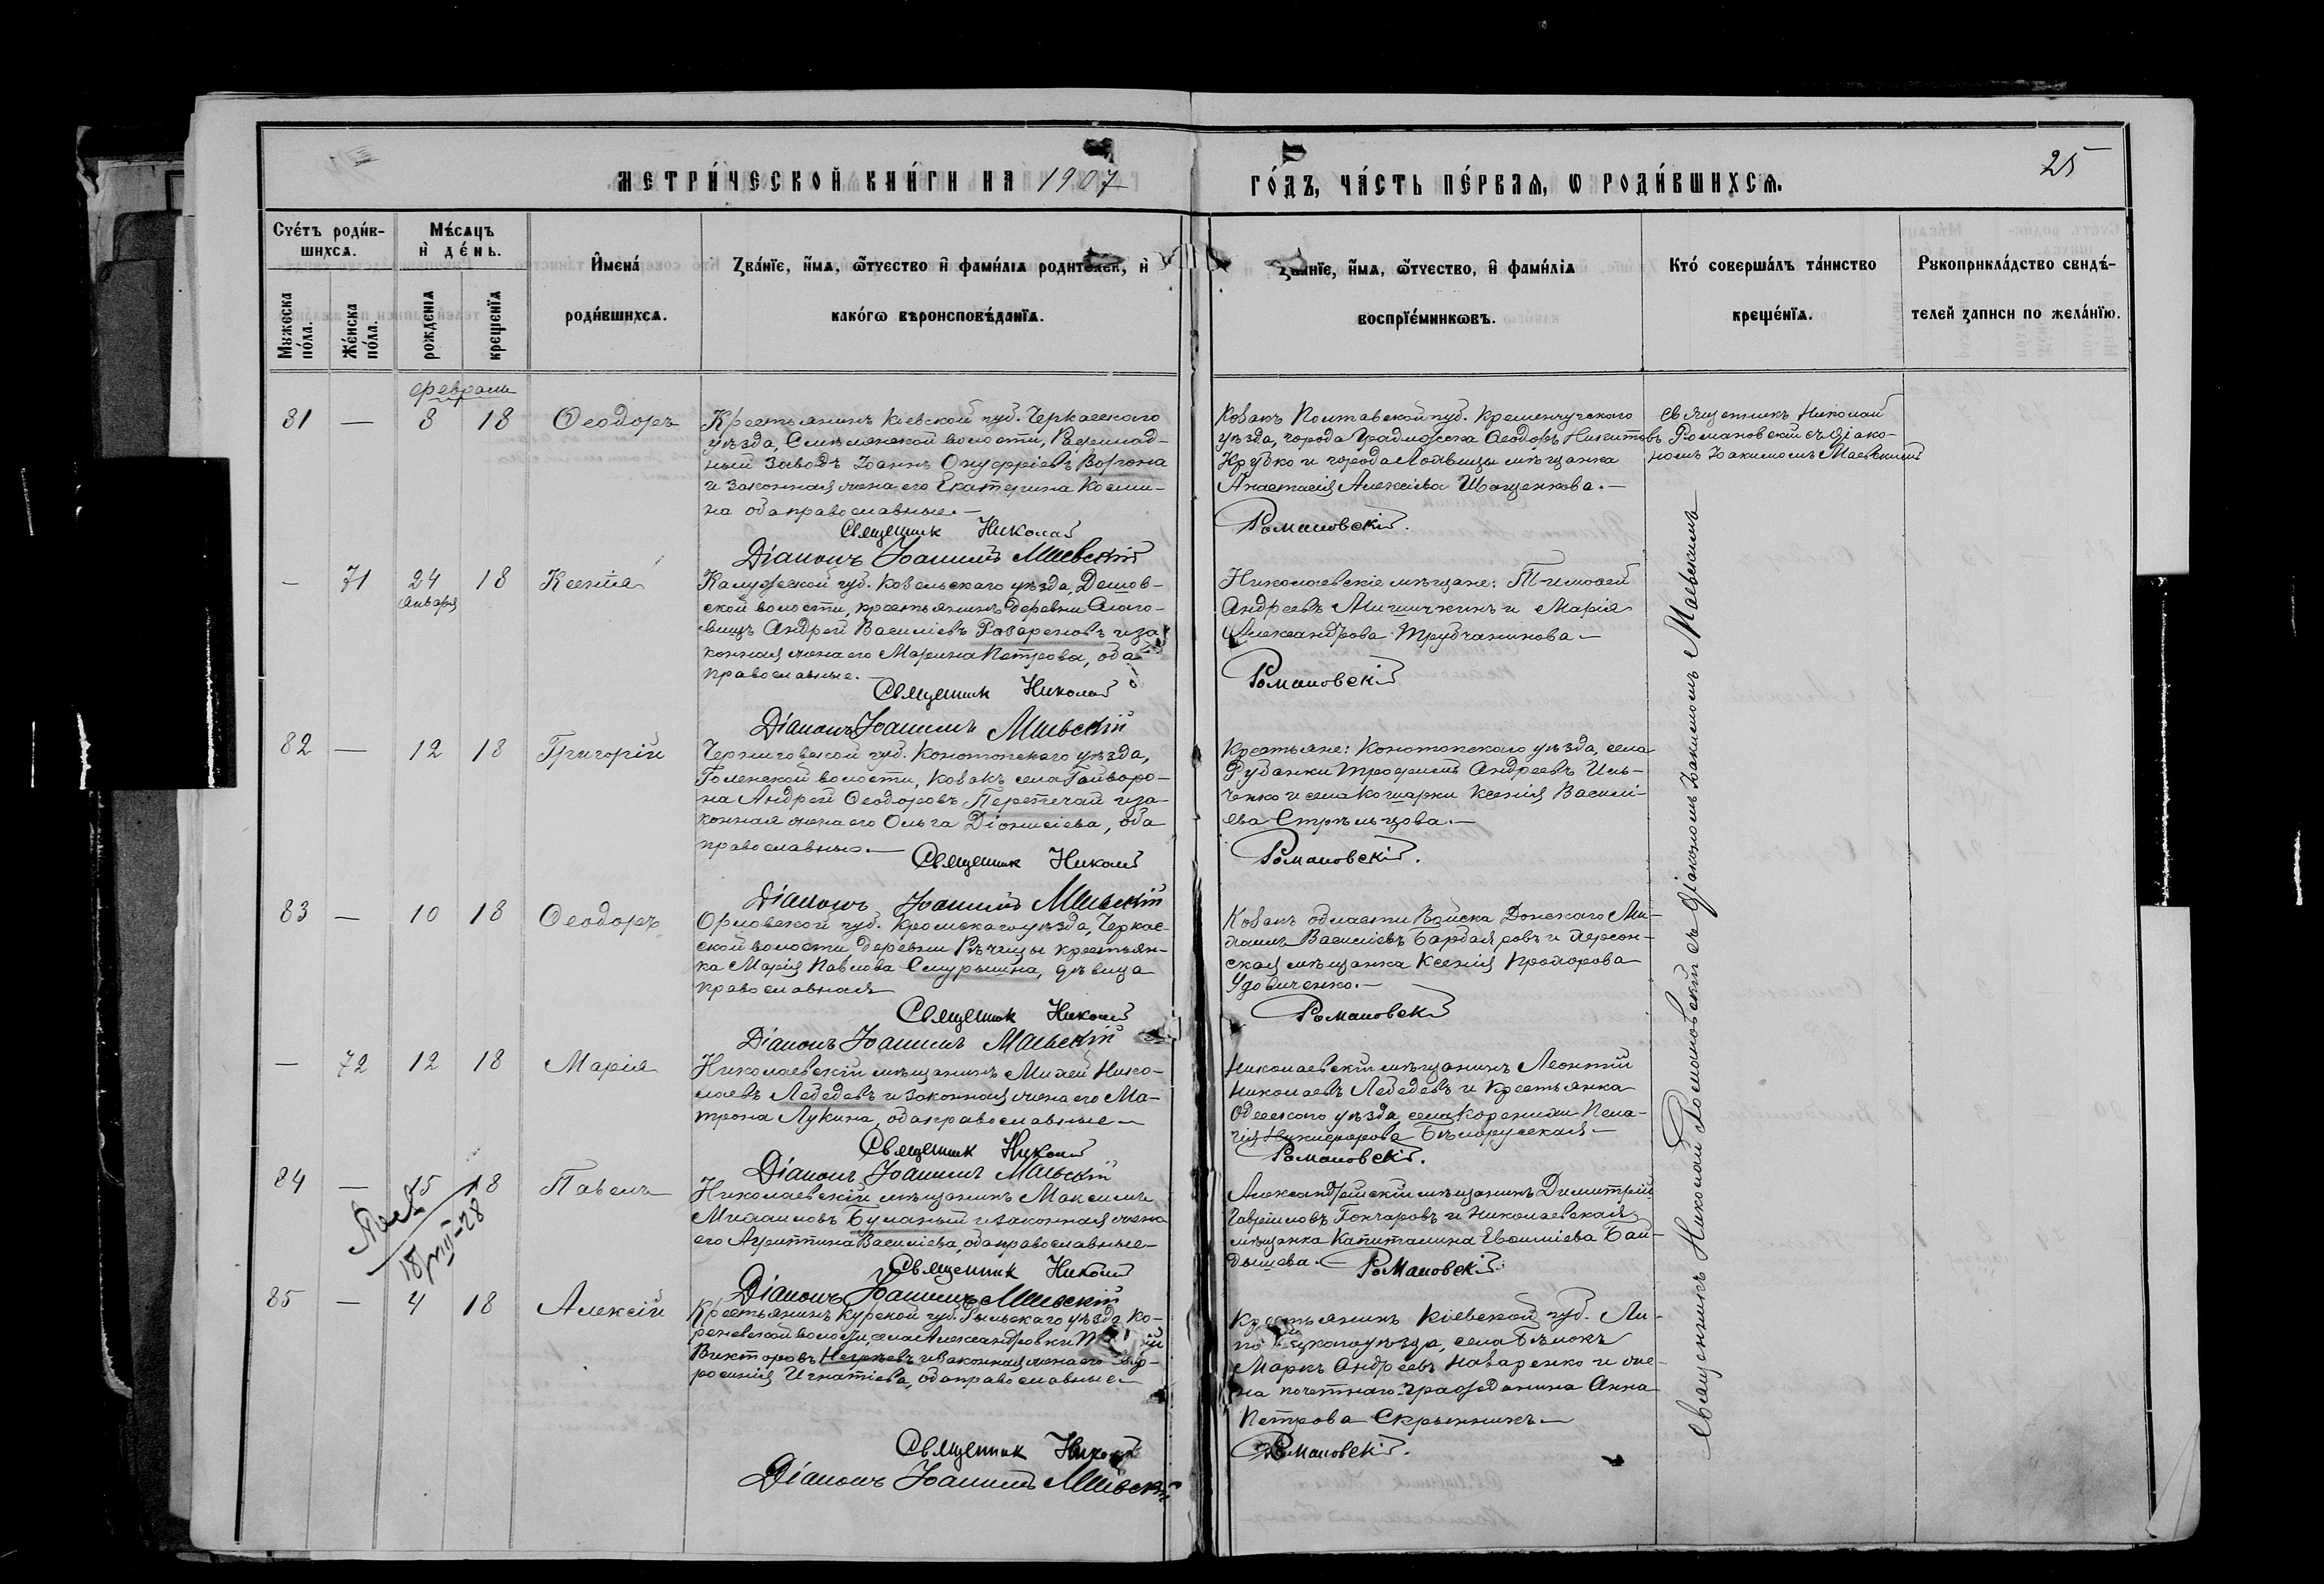 МЕТРИ́ЧЕСКОЙ КНИ́ГИ НА 1907
ГО́ДЪ, ЧА́СТЬ ПЕ́РВАѦ, Ѡ РОДИ́ВШИХСѦ.
25
Сче́тъ роди́в-
шихсѧ.
Мѣ́сѧцъ
и҆ де́нь.
Мꙋжеска
по́ла.
Же́нска
по́ла.
рожденїѧ
крещенїѧ
И҆мена́
роди́вшихсѧ.
Зва́нїе, и҆́мѧ, ѻ҆́тчество и҆ фами́лїѧ родителей, и҆
како́гѡ вѣроисповѣ́данїѧ.
Зва́нїе, и҆́мѧ, ѻ҆́тчество, и҆ фами́лїѧ
воспрїе́мникѡвъ.
Кто́ соверша́лъ та́инство
креще́нїѧ.
Рꙋкоприкла́дство свидѣ́-
телей записи по жела́нїю.
февраля
81 — 8 18 Ѳеодоръ
Крестьянинъ Кіевской губ. Черкасскаго
уѣзда, Смѣлянской волости, Рафинад-
ный заводъ Іоаннъ Онуфріевъ Воргона
и законная жена его Екатерина Косми-
на оба православные.—
Священник Николай
Діаконъ Іоакимъ Маевскій
Козакъ Полтавской губ. Кременчугскаго
уѣзда, города Градижска Ѳеодоръ Никитовъ
Крубко и города Лохвицы мѣщанка
Анастасія Алексіева Шащенкова.—
Романовскій.
Священникъ Николай
Романовскій съ діако-
номъ Іакимомъ Маевскимъ
— 71 24 18 Ксенія
января
Калужской губ. Козельскаго уѣзда, Дешов-
ской волости, крестьянинъ деревни
Андрей Василіевъ и за-
конная жена его Марина Петрова, оба
православные.—
Священник Николай
Діаконъ Іоакимъ Маевскій
Николаевскіе мѣщане: Тимоѳей
Андреевъ Мишичкинъ и Марія
Александрова Трубчанинова—
Романовскій
82 — 12 18 Григорій
Черниговской губ. Конотопскаго уѣзда,
Голенской волости, козакъ села Гайворо-
на Андрей Ѳеодоровъ Перепечай и за-
конная жена его Ольга Діонисіева, оба
православные.—
Священник Николай
Діаконъ Іоакимъ Маевскій
Крестьяне: Конотопскаго уѣзда, села
Рубанки Трофимъ Андреевъ Иль-
ченко и села Кошарки Ксенія Василі-
ева Стрѣльцова.—
Романовскій.
83 — 10 18 Ѳеодоръ
Орловской губ. Кромскаго уѣзда, Черкас-
ской волости деревни Рѣчицы крестьян-
ка Марія Павлова Снурьшина, дѣвица
православная
Священник Николай
Діаконъ Іоакимъ Маевскій
Козакъ области Войска Донскаго Ми-
хаилъ Василіевъ и Херсон-
ская мѣщанка Ксенія Прохорова
Удовиченко.—
Романовскій
— 72 12 18 Марія
Николаевскій мѣщанинъ Михей Нико-
лаевъ Лебедевъ и законная жена его Ма-
трона Лукина, оба православные—
Священник Николай
Діаконъ Іоакимъ Маевскій
Николаевскій мѣщанинъ Леонтій
Николаевъ Лебедевъ и крестьянка
Одесскаго уѣзда села Коренихи Пела-
гія Никифорова Бѣлорусская—
Романовскій.
84 — 15 18 Павелъ
18/VIII–28
Николаевскій мѣщанинъ Максимъ
Михаиловъ Буланый и законная жена
его Агриппина Василіева, оба православные—
Священник Николай
Діаконъ Іоакимъ Маевскій
Александрійскій мѣщанинъ Димитрій
Гавріиловъ Гончаровъ и Николаевская
мѣщанка Капиталина Евѳиміева Бай-
дышева.—
Романовскій.
85 — 4 18 Алексій
Крестьянинъ Курской губ. Рыльскаго уѣзда Ко-
реневской волости села Александровки
Викторовъ и законная жена его Евф-
росинія Игнатіева, оба православные—
Священник Николай
Діаконъ Іоакимъ Маевскій
Крестьянинъ Кіевской губ. Ли-
повецкаго уѣзда, села Бѣлокъ
Маркъ Андреевъ Назаренко и же-
на почетнаго гражданина Анна
Петрова Скрынникъ—
Романовскій.
Священникъ Николай Романовскій съ діакономъ Іоакимомъ Маевскимъ